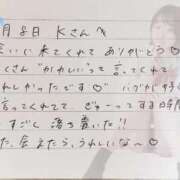 月8日 Kさんへ
会いに来てくれてありがとう♡
くさん"かわいい"って言ってくれて
れしかったです♡ ハグが好
言ってくれて、ぎゅーってする時間
すごく落ち着いた!!
た、会えたら、うれしいな〜♡